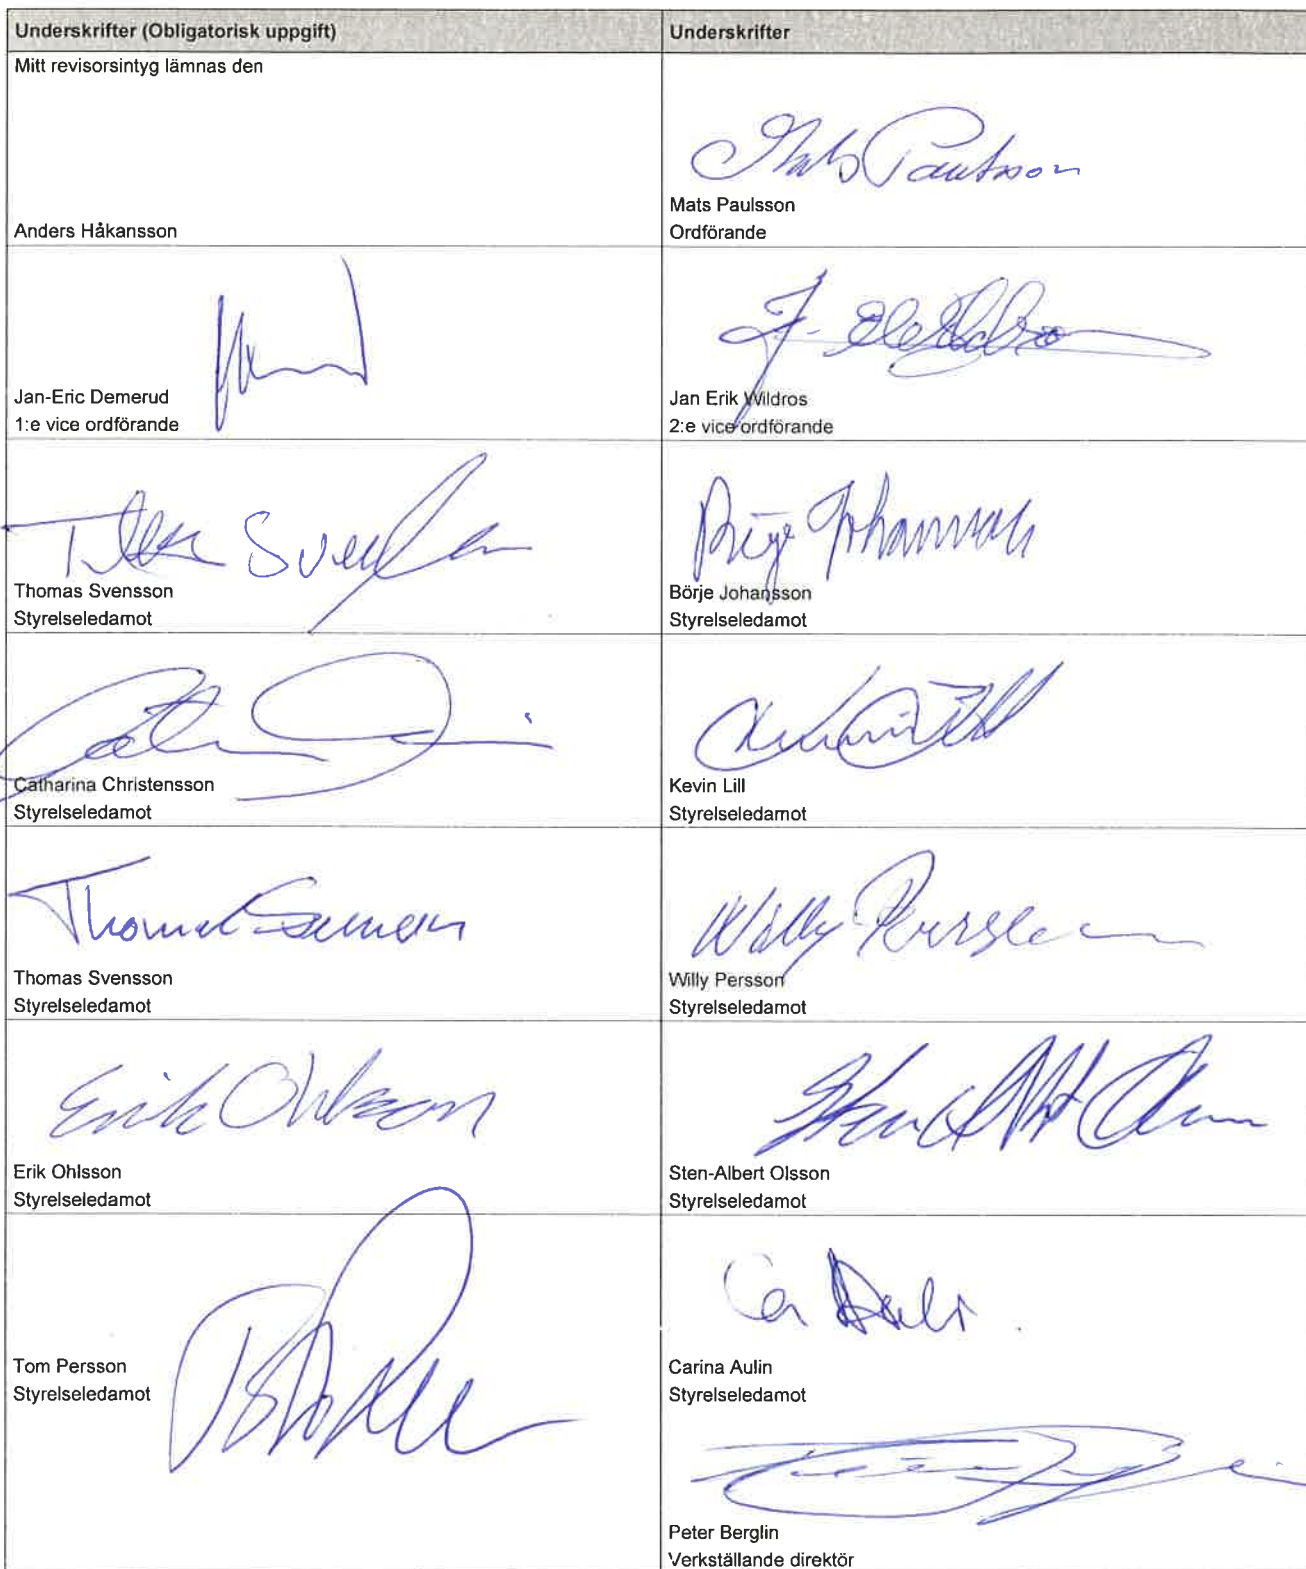 Underskrifter (Obligatorisk uppgift)
Underskrifter
Mitt revisorsintyg lämnas den
Anders Håkansson
Mats Paulsson
Mats Paulsson
Ordförande
Jan-Eric Demerud
1:e vice ordförande
Jan Erik Wildros
2:e vice ordförande
Thomas Svensson
Styrelseledamot
Börje Johansson
Börje Johansson
Styrelseledamot
Catharina Christensson
Styrelseledamot
Kevin Lill
Kevin Lill
Styrelseledamot
Thomas Svensson
Thomas Svensson
Styrelseledamot
Willy Persson
Willy Persson
Styrelseledamot
Erik Ohlsson
Erik Ohlsson
Styrelseledamot
Sten-Albert Olsson
Styrelseledamot
Tom Persson
Styrelseledamot
Carina Aulin
Styrelseledamot
Peter Berglin
Verkställande direktör